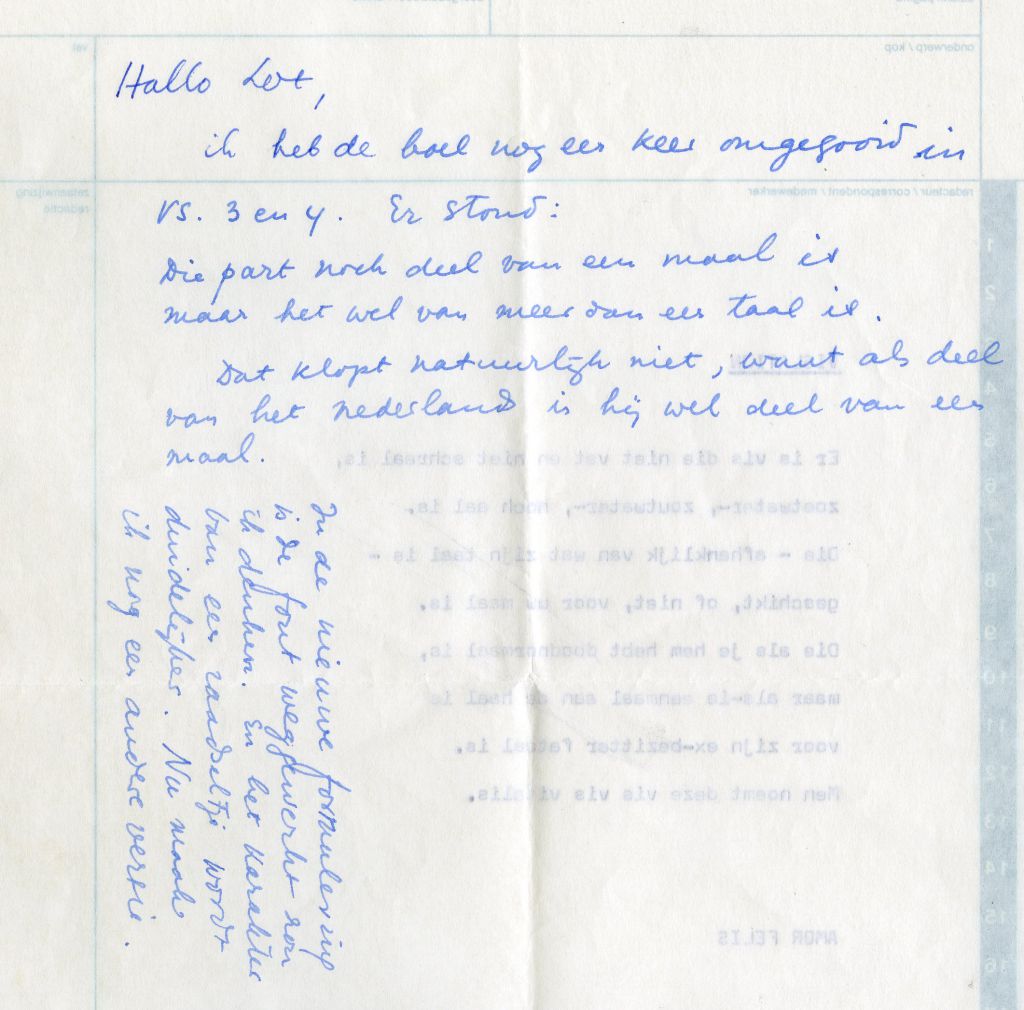 onderwerp / kop
vel
Hallo Lot,
ik heb de boel nog een keer omgegooid in
redacteur / correspondent / medewerker
zetaanwijzing
redactie
vs. 3 en 4. Er stond:
Die part noch deel van een maal is
maar het wel van meer dan een taal is.
Dat klopt natuurlijk niet, want als deel
van het nederlands is hij wel deel van een
maal.
In de nieuwe formulering
is de fout weggewerkt zou
ik denken. En het karakter
van een raadseltje wordt
duidelijker. Nu maak
ik nog een andere versie.
Er is vis die niet vet en niet schraal is,
zoetwater-, zoutwater-, noch aal is.
Die - afhanklijk van wat zijn taal is -
geschikt, of niet, voor uw maal is.
Die als je hem hebt doodnormaal is,
maar als-ie eenmaal aan de haal is
voor zijn ex-bezitter fataal is.
Men noemt deze vis vis vitalis.
AMOR FELIS
1
2
4
5
6
7
8
9
10
11
12
13
14
15
16